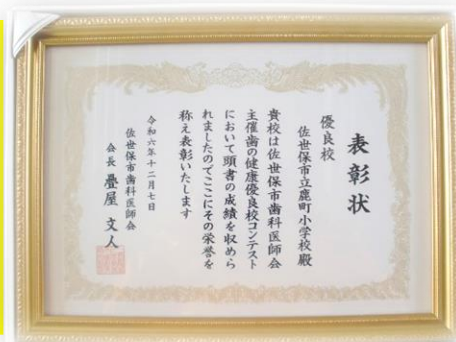 表彰状
優良校
佐世保市立鹿町小学校殿
貴校は佐世保市歯科医師会
主催歯の健康優良校コンテスト
において頭書の成績を収めら
れましたのでここにその栄誉を
称え表彰いたします
令和六年十二月七日
佐世保市歯科医師会
会長 疊屋 文人